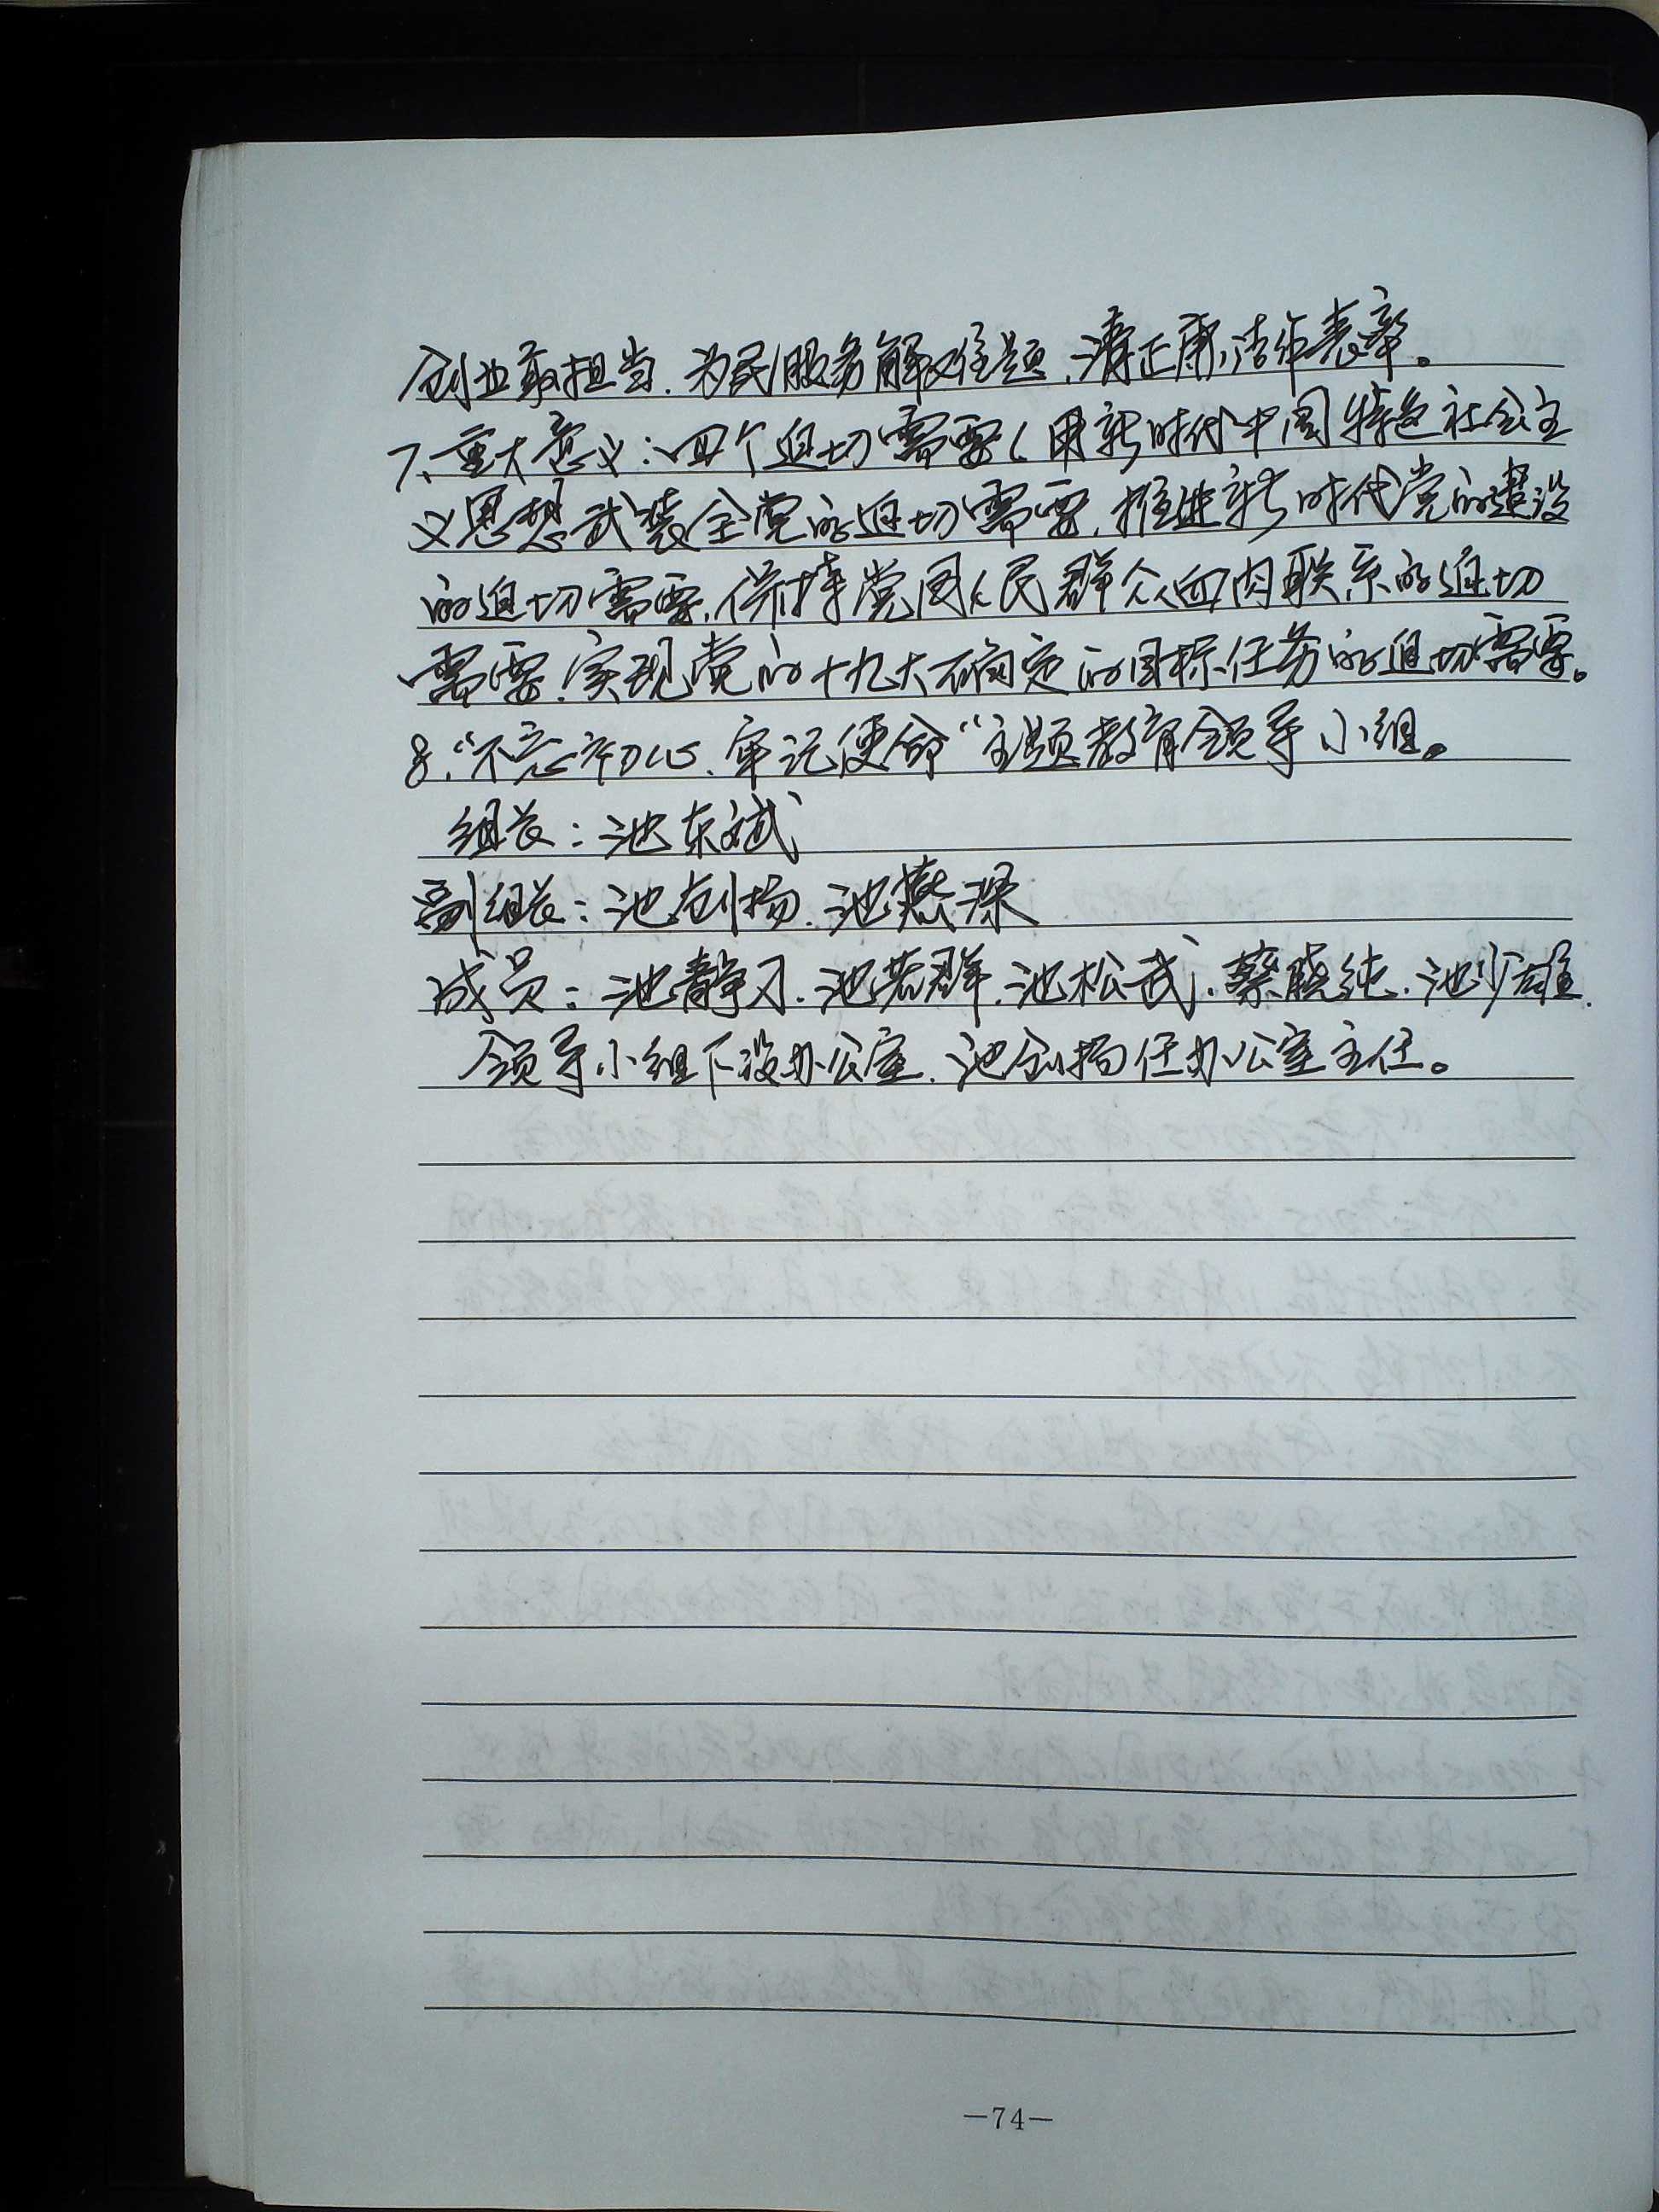 创业敢担当、为民服务解难题、清正廉洁作表率。
7、重大意义：四个迫切需要（用新时代中国特色社会主
义思想武装全党的迫切需要、推进新时代党的建设
的迫切需要、保持党同人民群众血肉联系的迫切
需要、实现党的十九大确定的目标任务的迫切需要。
8、“不忘初心、牢记使命“主题教育领导小组。
组长：池东斌
副组长：池创扬、池燕深
成员：池静刁、池若群、池松武、蔡晓纯、池少雄、
领导小组下设办公室、池创扬任办公室主任。
—74—